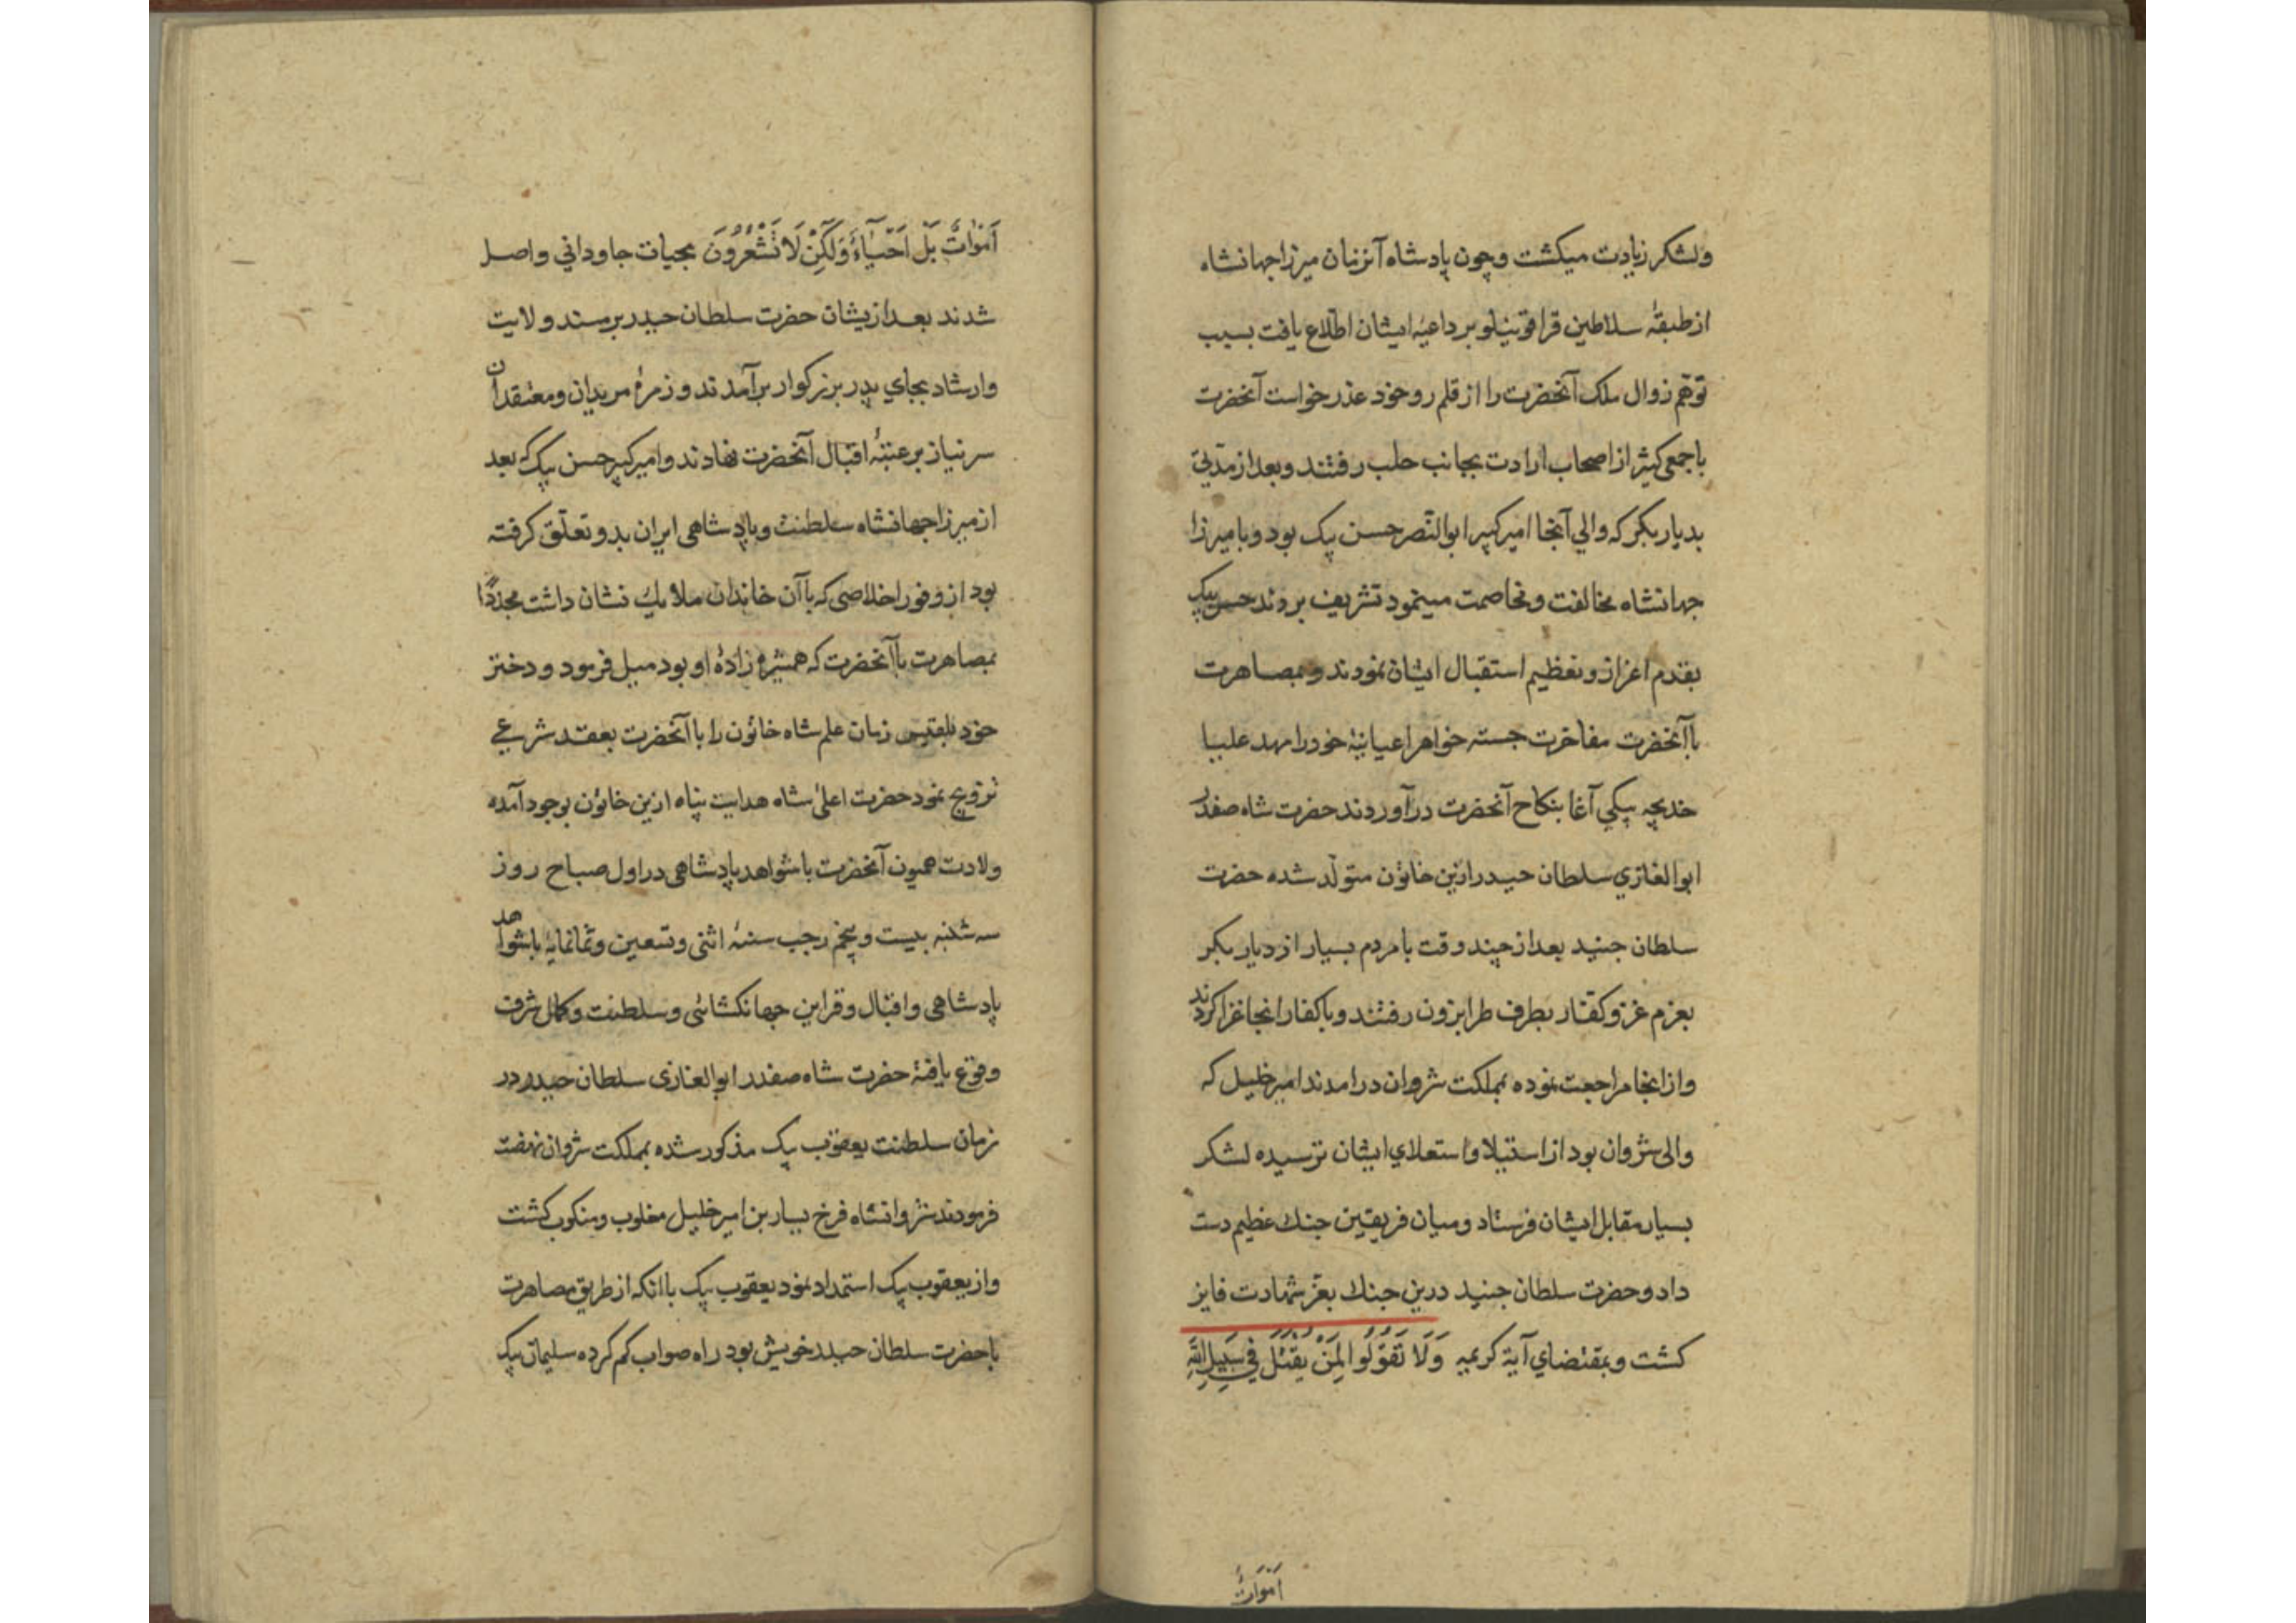 ولشکر زیادت میکشت وچون پادشاه آنزنان میرزا جهانشاه
از طبقهٔ سلاطین قراقوینلو بر داعیه ایشان اطلاع یافت بسبب
توهّم زوال ملک آنحضرت را از قلمرو خود عذر خواست آنحضرت
با جمعی کثیر از اصحاب ارادت بجانب حلب رفتند وبعد از مدتی
بدیار بکر که والي آنجا امیر کبیر ابوالنّصر حسن بیک بود وبا میرزا
جهانشاه مخالفت ومخاصمت مینمود تشریف بردند حسن بیک
بقدم اعزاز وتعظیم استقبال ایشان نمودند وبمصاهرت
باآنحضرت مفاخرت جسته خواهر اعیانیهٔ خود را مهد علیا
خدیجه بیکي آغا بنکاح آنحضرت درآوردند حضرت شاه صفدر
ابوالغازي سلطان حیدر ازین خاتون متولّد شده حضرت
سلطان جنید بعد از چند وقت با مردم بسیار از دیار بکر
بعزم غزو کفّار بطرف طرابزون رفتند وبا کفار انجا غزا کردند
واز انجا مراجعت نموده بمملکت شروان درامدند امیر خلیل که
والی شروان بود از استیلا واستعلاي ایشان ترسیده لشکر
بسیار مقابل ایشان فرستاد ومیان فریقین جنك عظیم دست
داد وحضرت سلطان جنید درین جنك بعزّ شهادت فایز
کشت وبمقتضاي آیة کریمه وَلَا تَقُولُوا لِمَنْ یُقْتَلُ فِي سَبِیلِ اللَّهِ
اَمْوَاتٌ
اَمْوَاتٌ بَلْ اَحْیَآءٌ وَلَکِنْ لَا تَشْعُرُونَ بحیات جاوداني واصل
شدند بعد ازیشان حضرت سلطان حیدر بر مسند ولایت
وارشاد بجاي پدر بزرکوار برآمدند وزمرهٔ مریدان ومعتقدان
سر نیاز بر عتبهٔ اقبال آنحضرت نهادند وامیر کبیر حسن بیک که بعد
از میرزا جهانشاه سلطنت وپادشاهی ایران بدو تعلّق کرفته
بود از وفور اخلاصی که باآن خاندان ملایك نشان داشت مجدّدًا
بمصاهرت باآنحضرت که همشیره زادهٔ او بود میل فرمود ودختر
خود بلقیس زمان علمشاه خاتون را باآنحضرت بعقد شرعي
تزویج نمود حضرت اعلیٰ شاه هدایت پناه ازین خاتون بوجود آمده
ولادت همیون آنحضرت با شواهد پادشاهی در اول صباح روز
سه شنبه بیست وپنجم رجب سنهٔ اثنی وتسعین وثمانمایهٔ با شواهد
پادشاهی واقبال وقراین جهانکشائی وسلطنت وکمال شرف
وقوع یافتهٔ حضرت شاه صفدر ابوالغازی سلطان حیدر در
زمان سلطنت یعقوب بیک مذکور شده بمملکت شروان نهضت
فرمودند شروانشاه فرخ یسار بن امیر خلیل مغلوب ومنکوب کشت
واز یعقوب بیک استمداد نمود یعقوب بیک باانکه از طریق مصاهرت
باحضرت سلطان حیدر خویش بود راه صواب کم کرده سلیمان بیک